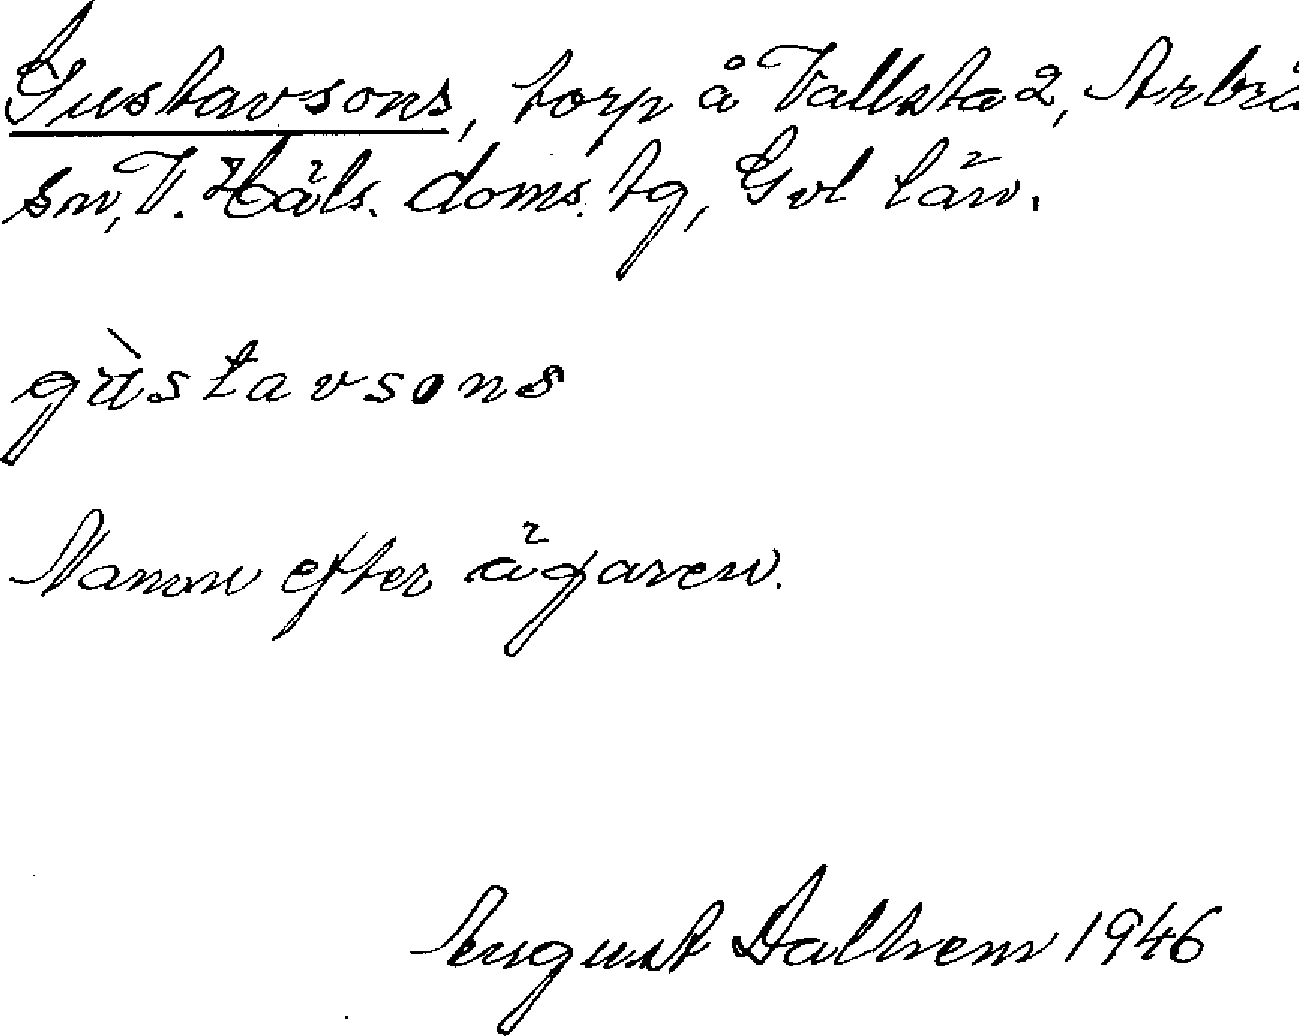 Gustavsons, torp å Vallsta 2, Arbrå
sn, V. Häls. doms. tg, Gvl län.
gùstavsons
Namn efter ägaren.
August Dalhem 1946